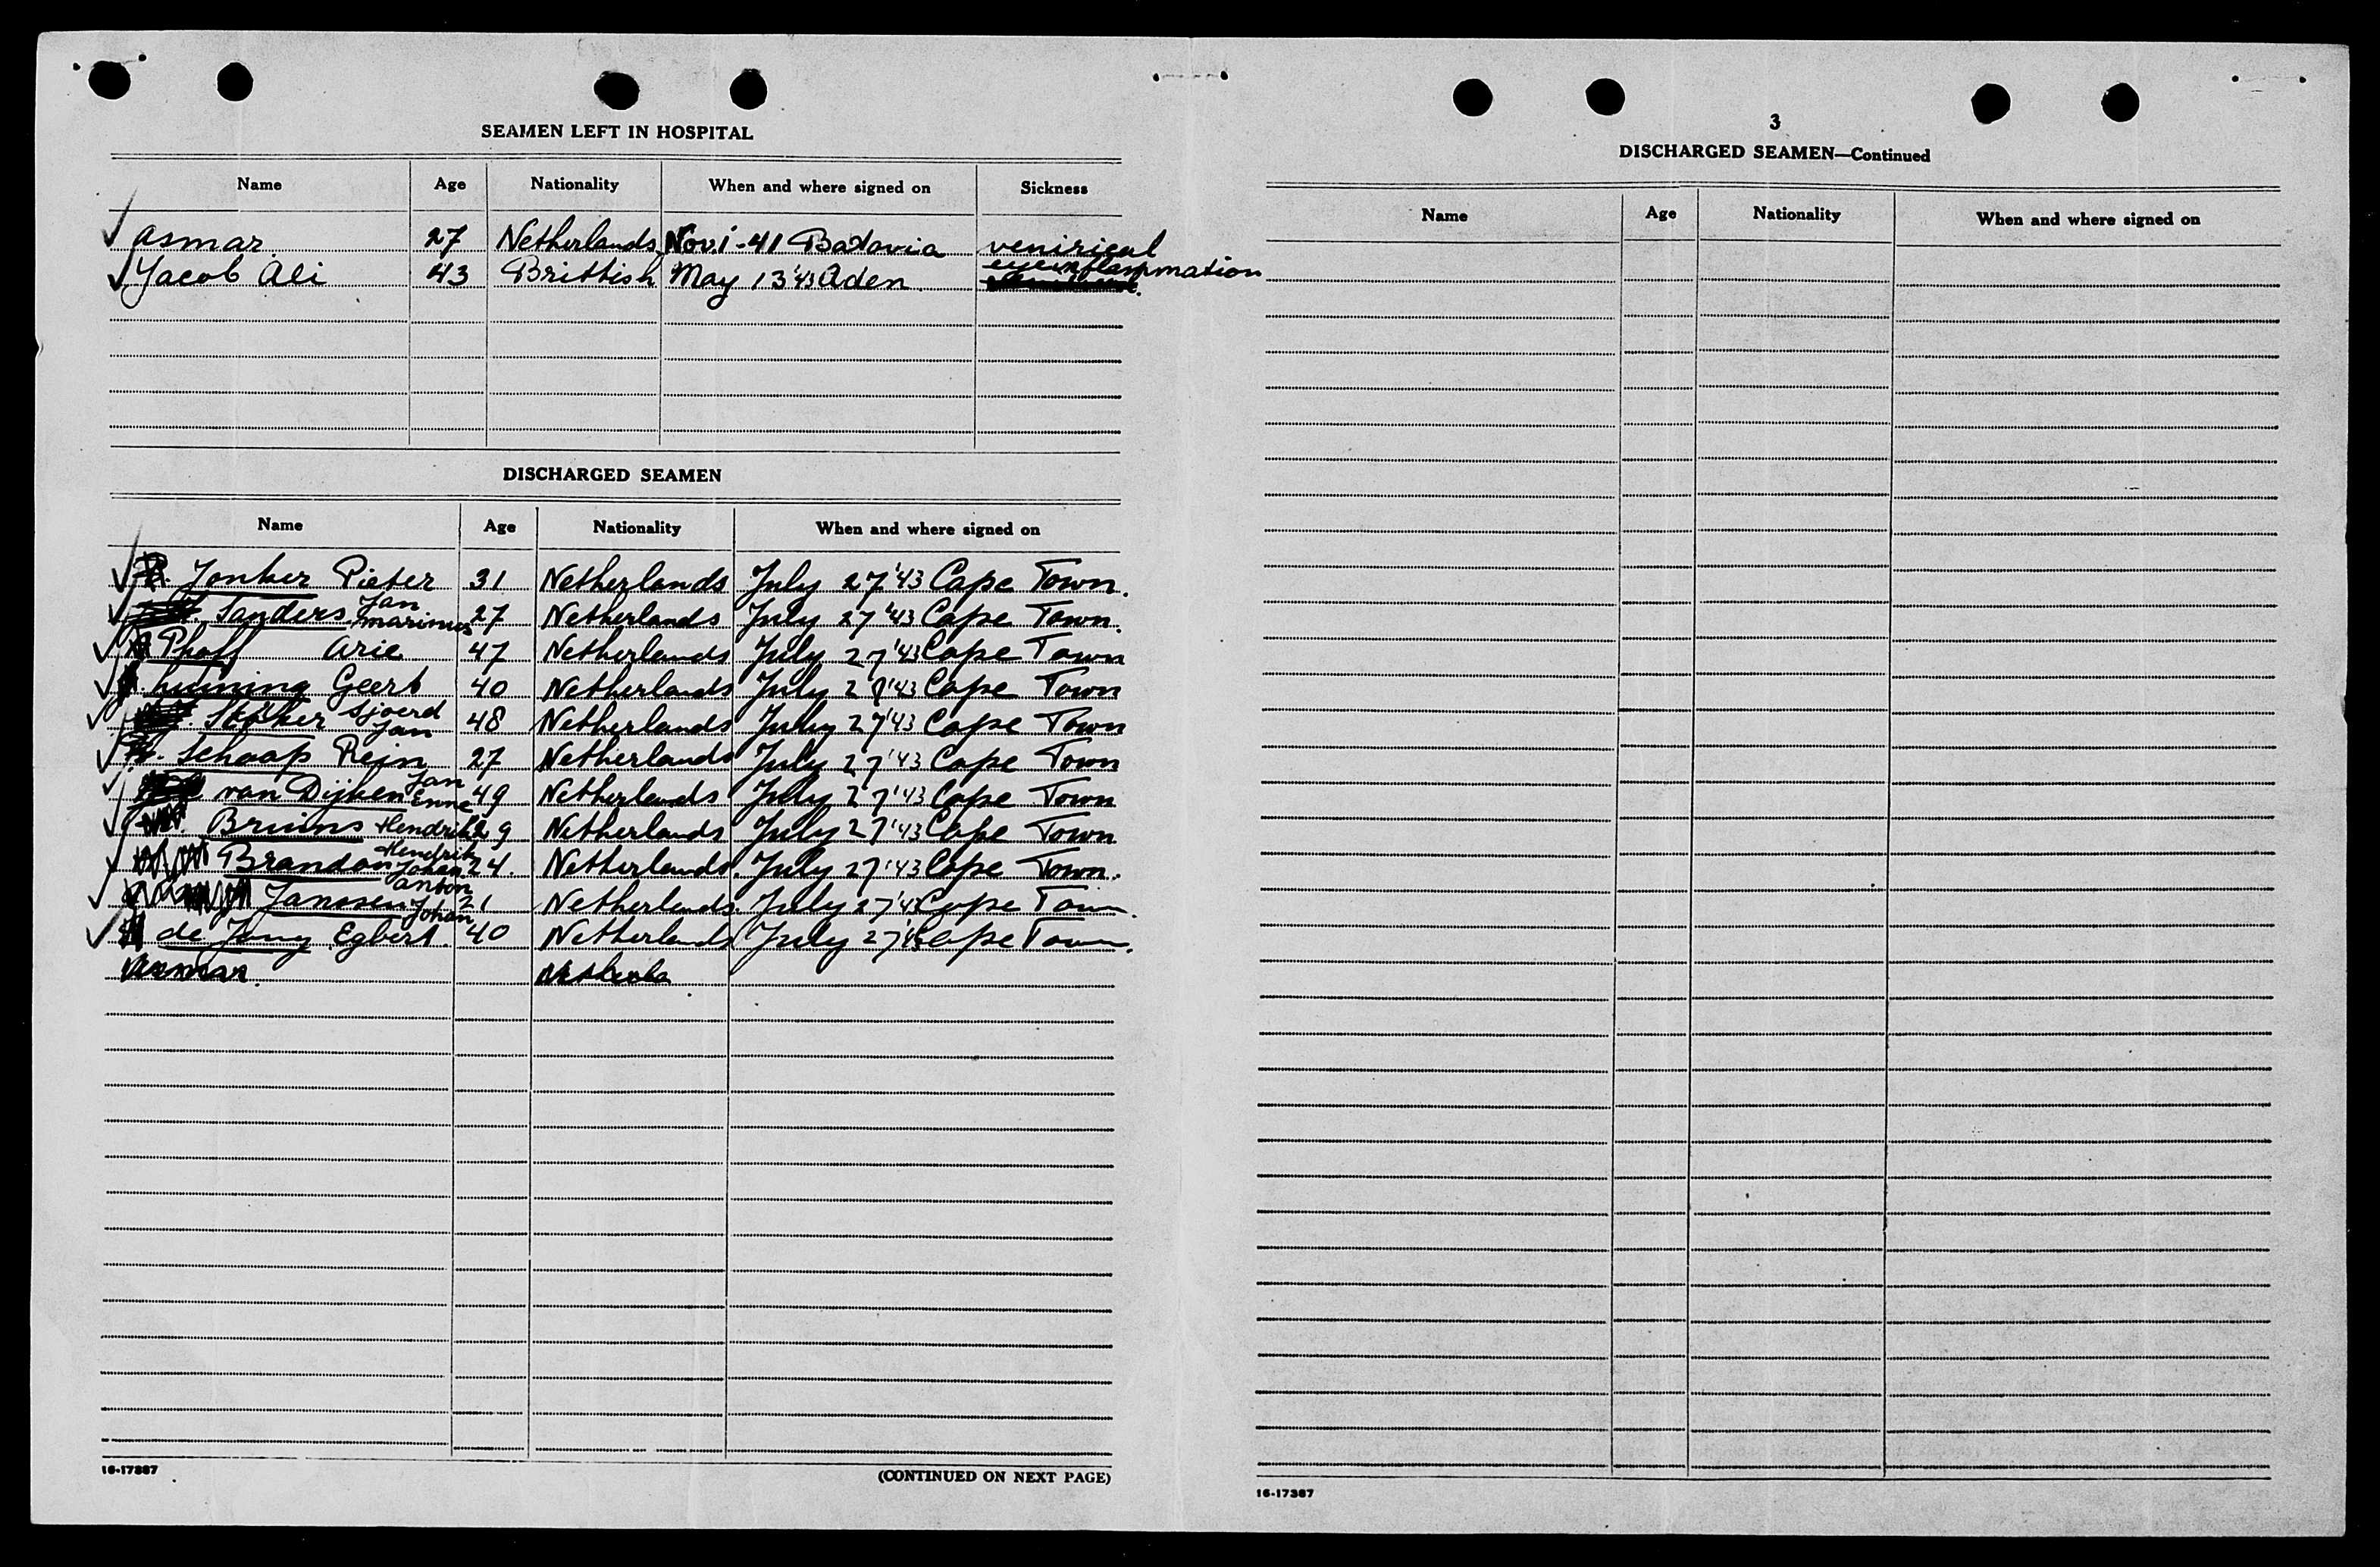 SEAMEN LEFT IN HOSPITAL
Name Age Nationality When and where signed on Sickness
Asmar 27 Netherlands Nov 1 - 41 Batavia venirical
Jacob Ali 43 Brittish May 13 '43 Aden. eye inflammation
DISCHARGED SEAMEN
Name Age Nationality When and where signed on
Jonker Pieter 31 Netherlands July 27 '43 Cape Town.
Sanders Jan Marinus 27 Netherlands July 27 '43 Cape Town.
Phaff Arie 47 Netherlands July 27 '43 Cape Town
Luining Geert 40 Netherlands July 27 '43 Cape Town
Sjoerd Jan 48 Netherlands July 27 '43 Cape Town
Schaap Rein 27 Netherlands July 27 '43 Cape Town
van Dijken Jan Enne 49 Netherlands July 27 '43 Cape Town
Bruins Hendrik 29 Netherlands July 27 '43 Cape Town
Brandon Hendrik Johan 24. Netherlands. July 27 '43 Cape Town.
Janssen Anton Johan 21 Netherlands. July 27 '43 Cape Town.
de Jong Egbert. 40 Netherlands July 27 '43 Cape Town.
16-17387
(CONTINUED ON NEXT PAGE)
3
DISCHARGED SEAMEN—Continued
Name Age Nationality When and where signed on
16-17387